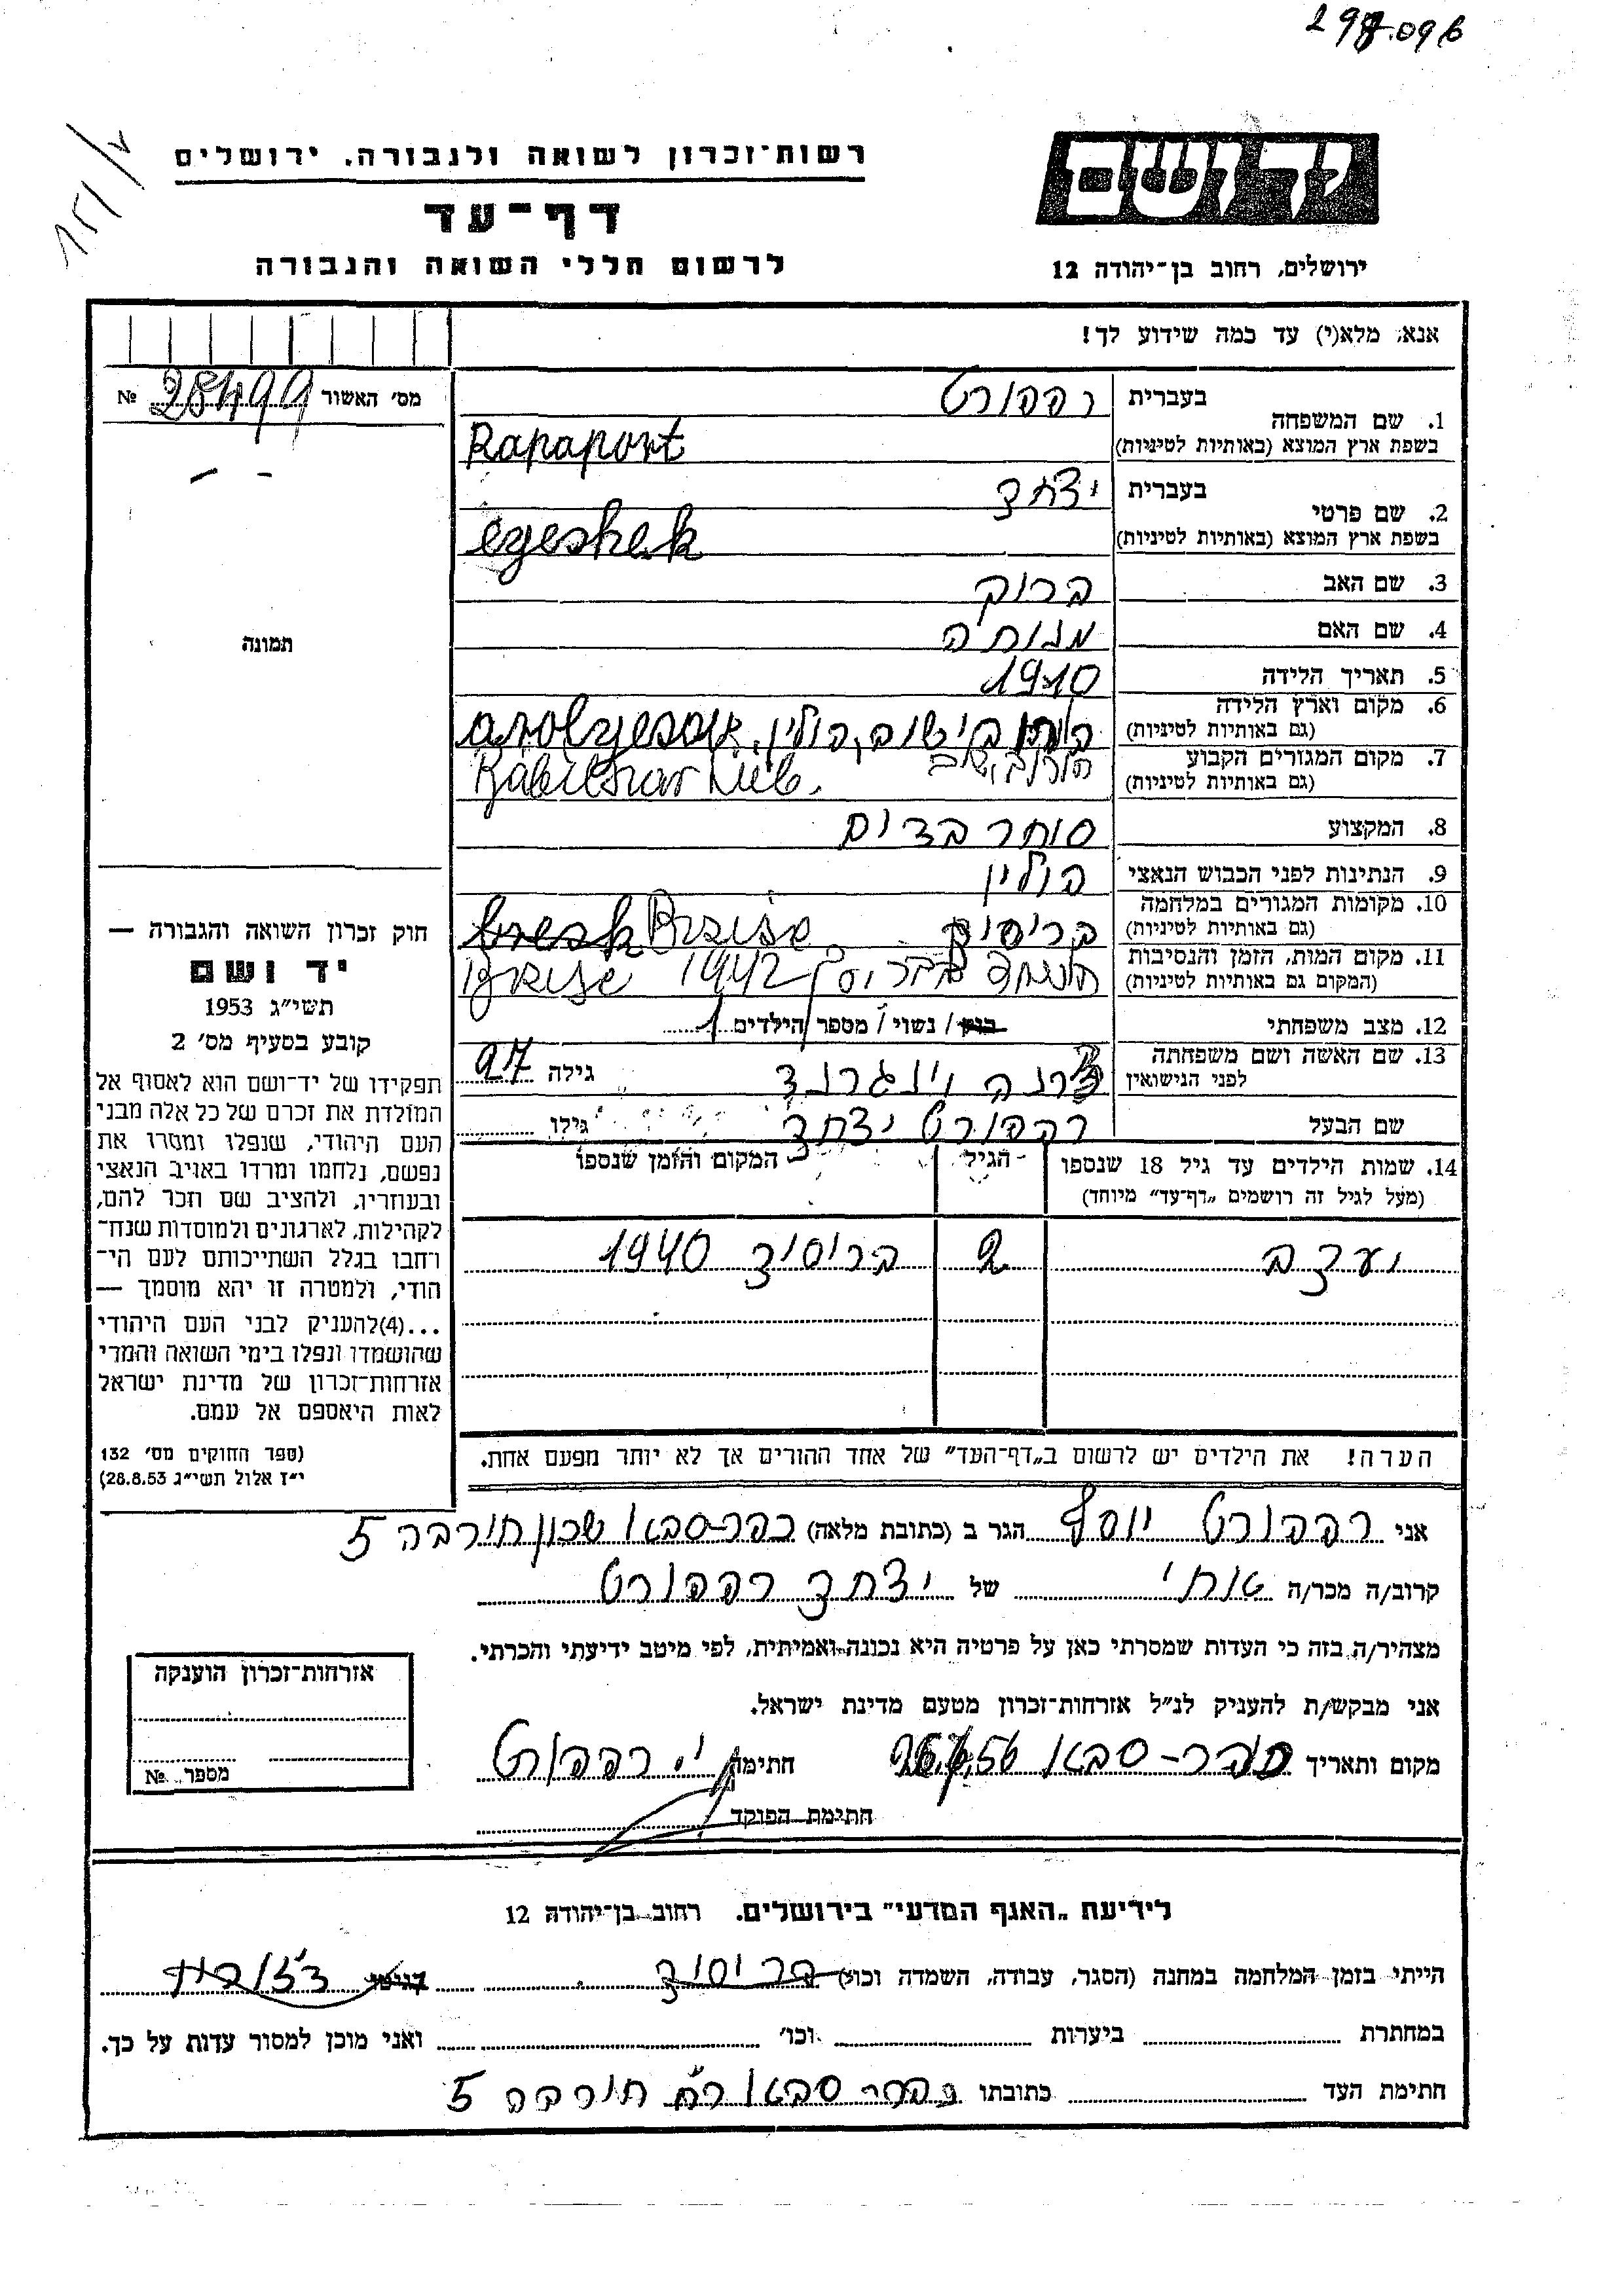 298.096
רשות־זכרון לשואה ולגבורה, ירושלים
דף־עד
לרשום חללי השואה והגבורה
יד ושם
ירושלים, רחוב בן־יהודה 12
אנא, מלא(י) עד כמה שידוע לך!
מס' האשור № 28499
תמונה
1. שם המשפחה
בעברית רפפורט
בשפת ארץ המוצא (באותיות לטיניות) Rapaport
2. שם פרטי
בעברית יצחק
בשפת ארץ המוצא (באותיות לטיניות) egeshek
3. שם האב ברוך
4. שם האם מנוחה
5. תאריך הלידה 1910
6. מקום וארץ הלידה
(גם באותיות לטיניות) פולין,
7. מקום המגורים הקבוע
(גם באותיות לטיניות)
8. המקצוע סוחר בדים
9. הנתינות לפני הכבוש הנאצי פולין
10. מקומות המגורים במלחמה
(גם באותיות לטיניות) בריסק Brzise
11. מקום המות, הזמן והנסיבות
(המקום גם באותיות לטיניות) 1942
12. מצב משפחתי רווק / נשוי / מספר הילדים 1
13. שם האשה ושם משפחתה
לפני הנישואין וינגרנד גילה 27
שם הבעל רפפורט יצחק גילו
14. שמות הילדים עד גיל 18 שנספו הגיל המקום והזמן שנספו
(מעל לגיל זה רושמים „דף־עד" מיוחד)
יעקב 2 בריסק 1940
הערה! את הילדים יש לרשום ב„דף־העד" של אחד ההורים אך לא יותר מפעם אחת.
חוק זכרון השואה והגבורה —
יד ושם
תשי"ג 1953
קובע בסעיף מס' 2
תפקידו של יד־ושם הוא לאסוף אל
המולדת את זכרם של כל אלה מבני
העם היהודי, שנפלו ומסרו את
נפשם, נלחמו ומרדו באויב הנאצי
ובעוזריו, ולהציב שם וזכר להם,
לקהילות, לארגונים ולמוסדות שנח־
רחבו בגלל השתייכותם לעם הי־
הודי, ולמטרה זו יהא מוסמך —
...(4)להעניק לבני העם היהודי
שהושמדו ונפלו בימי השואה והמרי
אזרחות־זכרון של מדינת ישראל
לאות היאספם אל עמם.
(ספר החוקים מס' 132
י"ז אלול תשי"ג 28.8.53)
אני רפפורט יוסף הגר ב (כתובת מלאה) כפר-סבא שכון חורבה 5
קרוב/ה מכר/ה אחי של יצחק רפפורט
מצהיר/ה בזה כי העדות שמסרתי כאן על פרטיה היא נכונה ואמיתית, לפי מיטב ידיעתי והכרתי.
אני מבקש/ת להעניק לנ"ל אזרחות־זכרון מטעם מדינת ישראל.
מקום ותאריך כפר-סבא חתימה י. רפפורט
חתימת הפוקד
אזרחות־זכרון הוענקה
מספר №
לידיעת „האגף המדעי" בירושלים, רחוב בן־יהודה 12
הייתי בזמן המלחמה במחנה (הסגר, עבודה, השמדה וכו') בריסק בגיטו
במחתרת ביערות וכו' ואני מוכן למסור עדות על כך.
חתימת העד כתובתו כפר סבא רח' חורבה 5